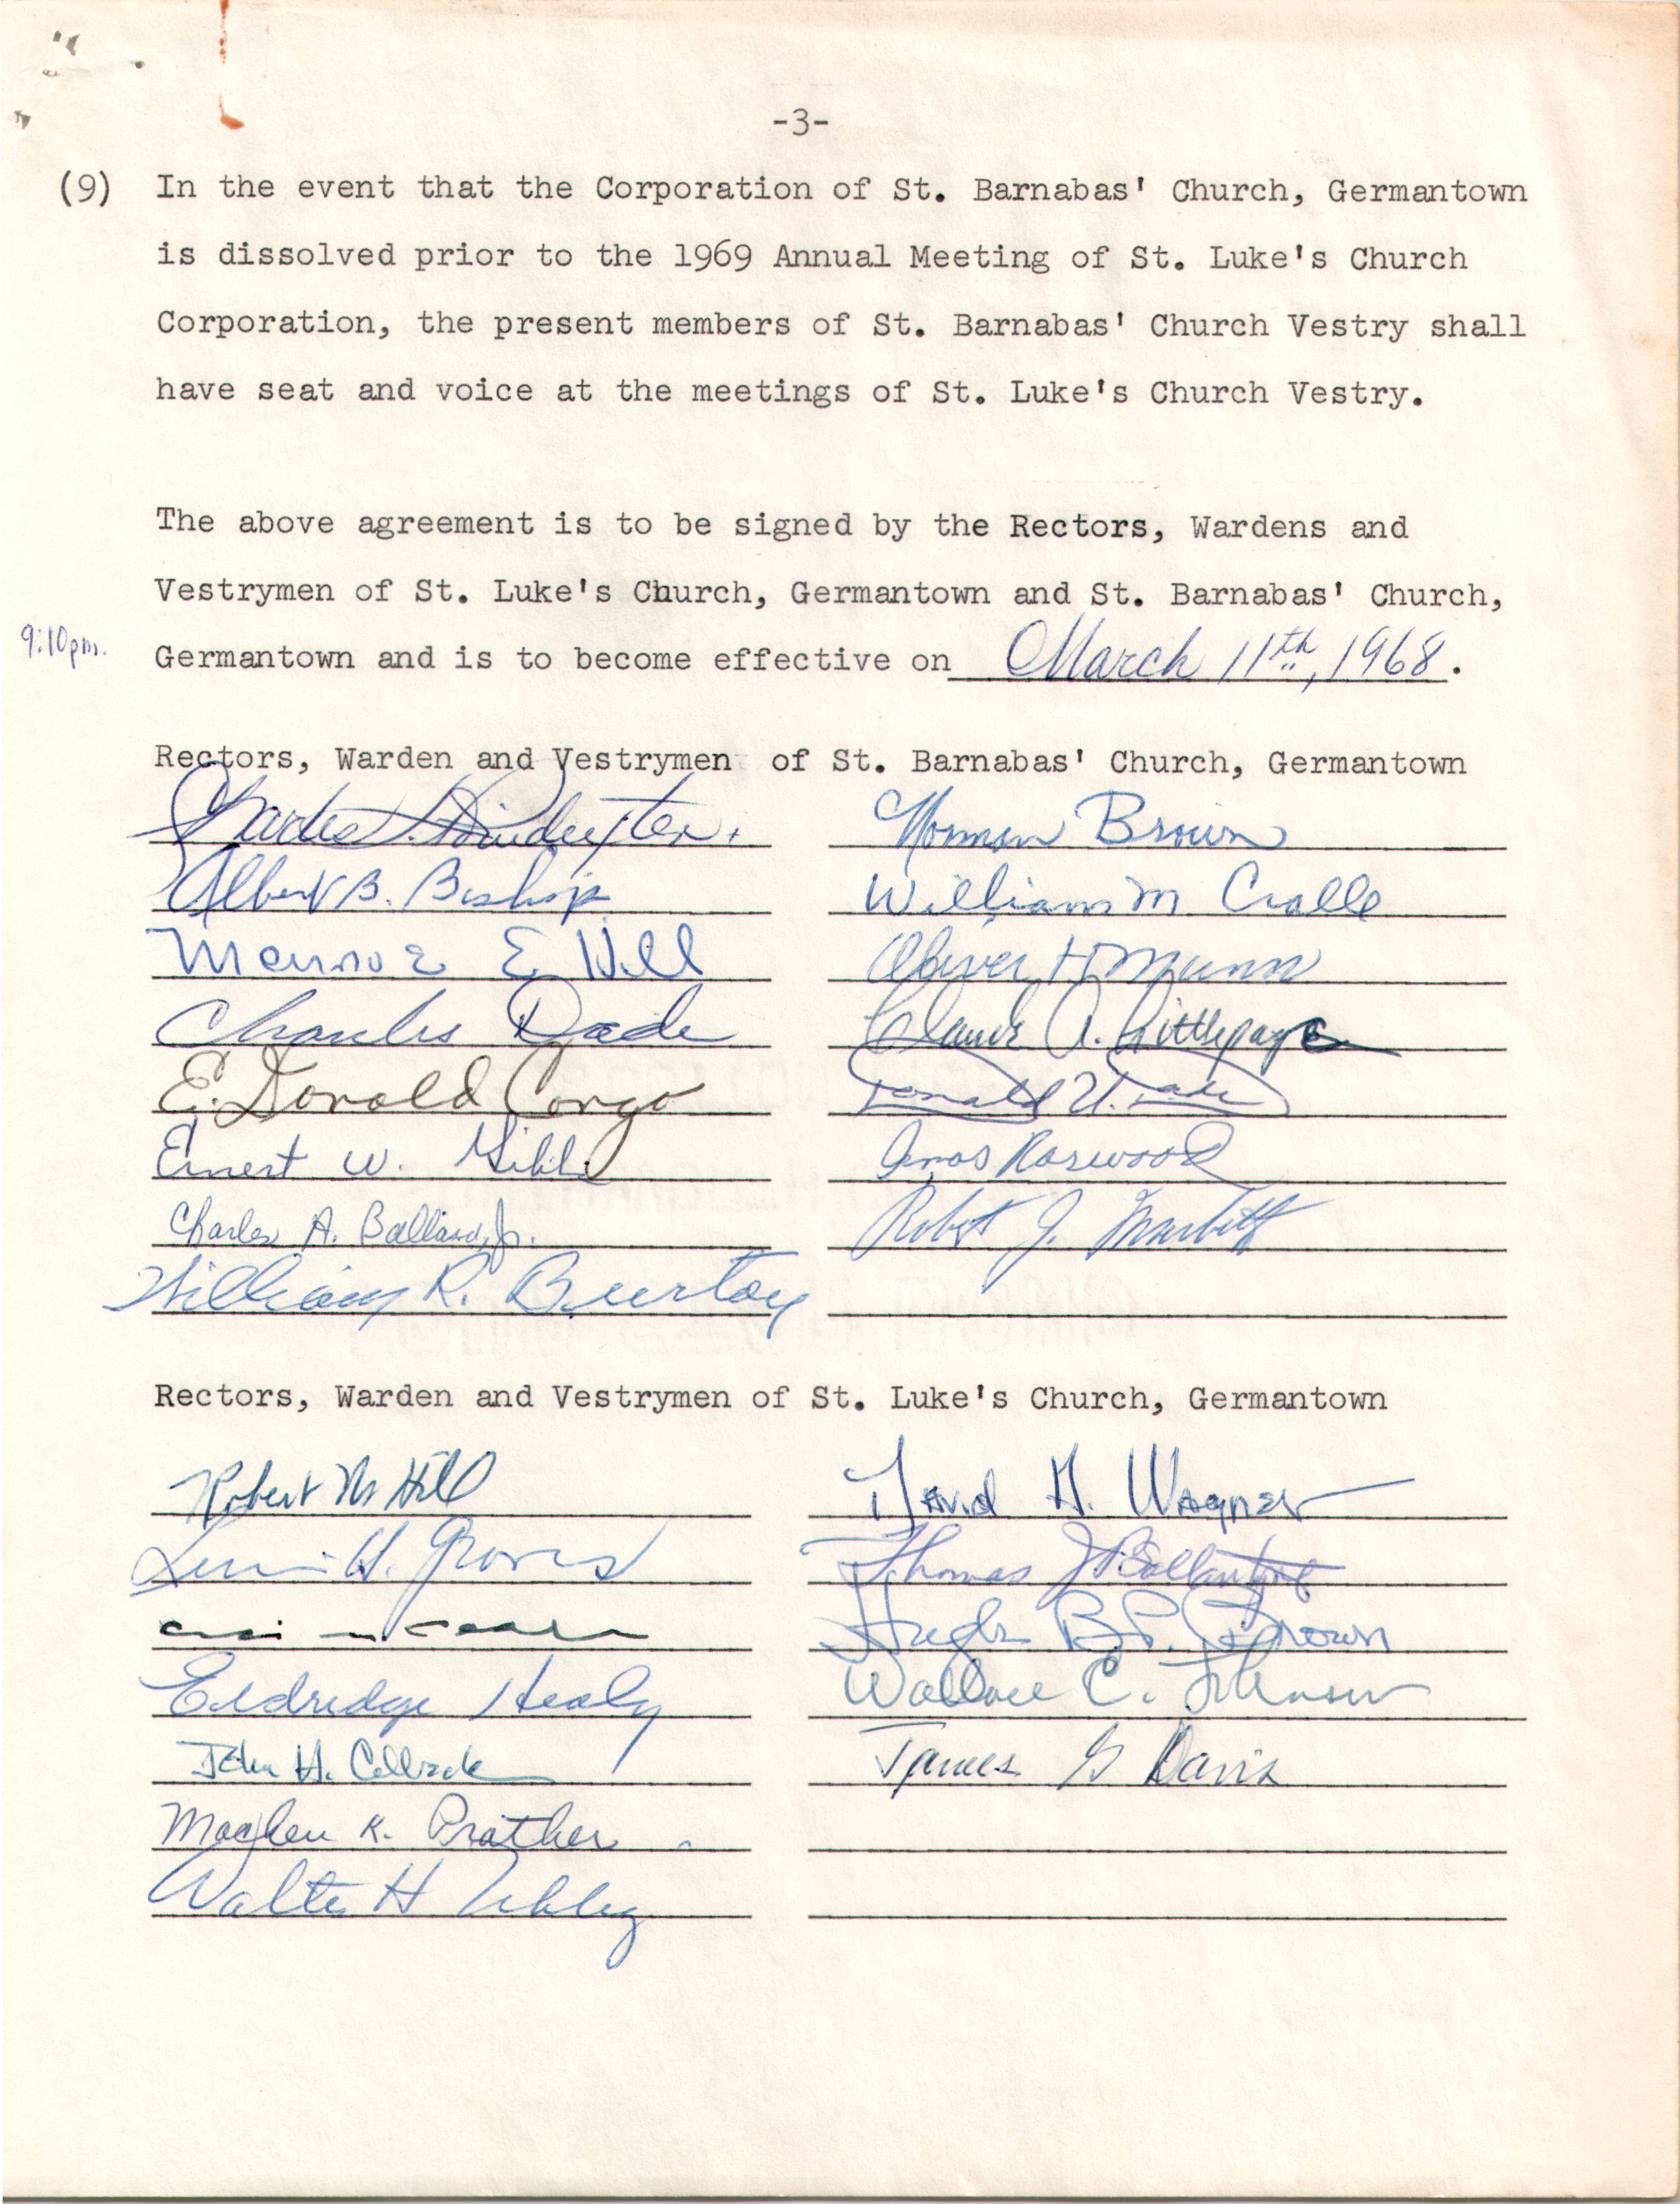 -3-
(9) In the event that the Corporation of St. Barnabas' Church, Germantown
is dissolved prior to the 1969 Annual Meeting of St. Luke's Church
Corporation, the present members of St. Barnabas' Church Vestry shall
have seat and voice at the meetings of St. Luke's Church Vestry.
The above agreement is to be signed by the Rectors, Wardens and
Vestrymen of St. Luke's Church, Germantown and St. Barnabas' Church,
9:10pm. Germantown and is to become effective on March 11th, 1968.
Rectors, Warden and Vestrymen of St. Barnabas' Church, Germantown
Charles Norman Brown
Albert B. Bishop William M Cralle
E. Hill Oliver H Munn
Charles Dade A. Littlepage
E. Donald Congo Donald
Ernest W. Amos Harwood
Charles A. Ballard, Jr. Robert J.
William R. Burton
Rectors, Warden and Vestrymen of St. Luke's Church, Germantown
Robert M Hill David H. Wagner
H. Groves Thomas J Ballantyne
Hugh B.P. Brown
Eldredge Healy Wallace C. Johnson
John H. James G Davis
K. Prather
Walter H